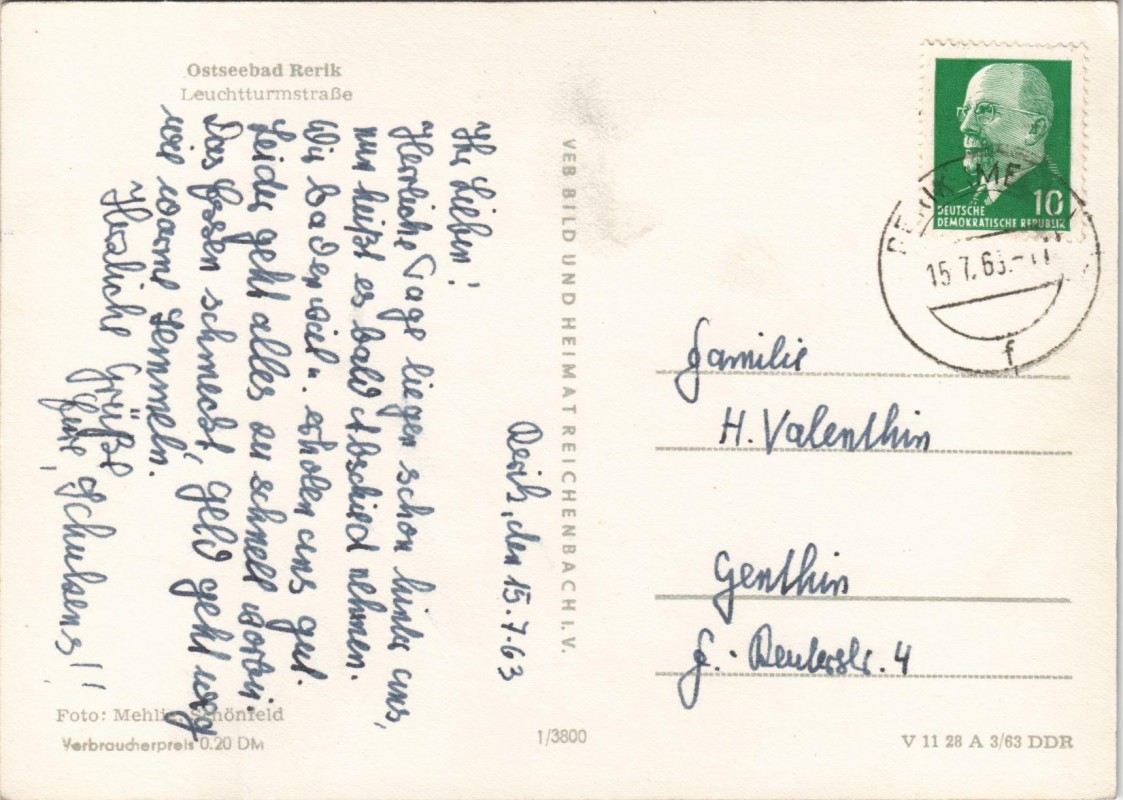 Ostseebad Rerik
Leuchtturmstraße
Rerik, den 15.7.63
Ihr Lieben!
Herrliche Tage liegen schon hinter uns,
nun heißt es bald Abschied nehmen.
Wir baden viel u. erholen uns gut.
Leider geht alles zu schnell vorbei.
Das Essen schmeckt, Geld geht weg
wie warme Semmeln.
Herzliche Grüße
Eure Schulzens!
Foto: Mehlis, Schönfeld
Verbraucherpreis 0.20 DM
VEB BILD UND HEIMAT REICHENBACH I. V.
1/3800
10
DEUTSCHE
DEMOKRATISCHE REPUBLIK
RERIK
15.7.63.-17
f
Familie
H. Valenthin
Genthin
F.-Reuterstr. 4
V 11 28 A 3/63 DDR